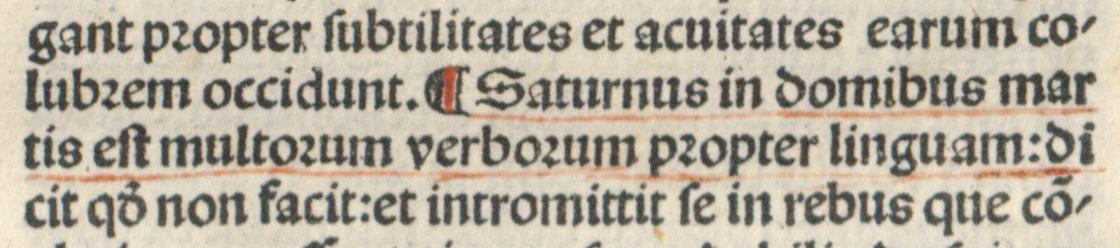 gant propter ſubtilitates et acuitates earum co⸗
lubrem occidunt. ¶ Saturnus in domibus mar
tis eſt multorum verborum propter linguam: di
cit qđ non facit: et intromittit ſe in rebus que cõ⸗